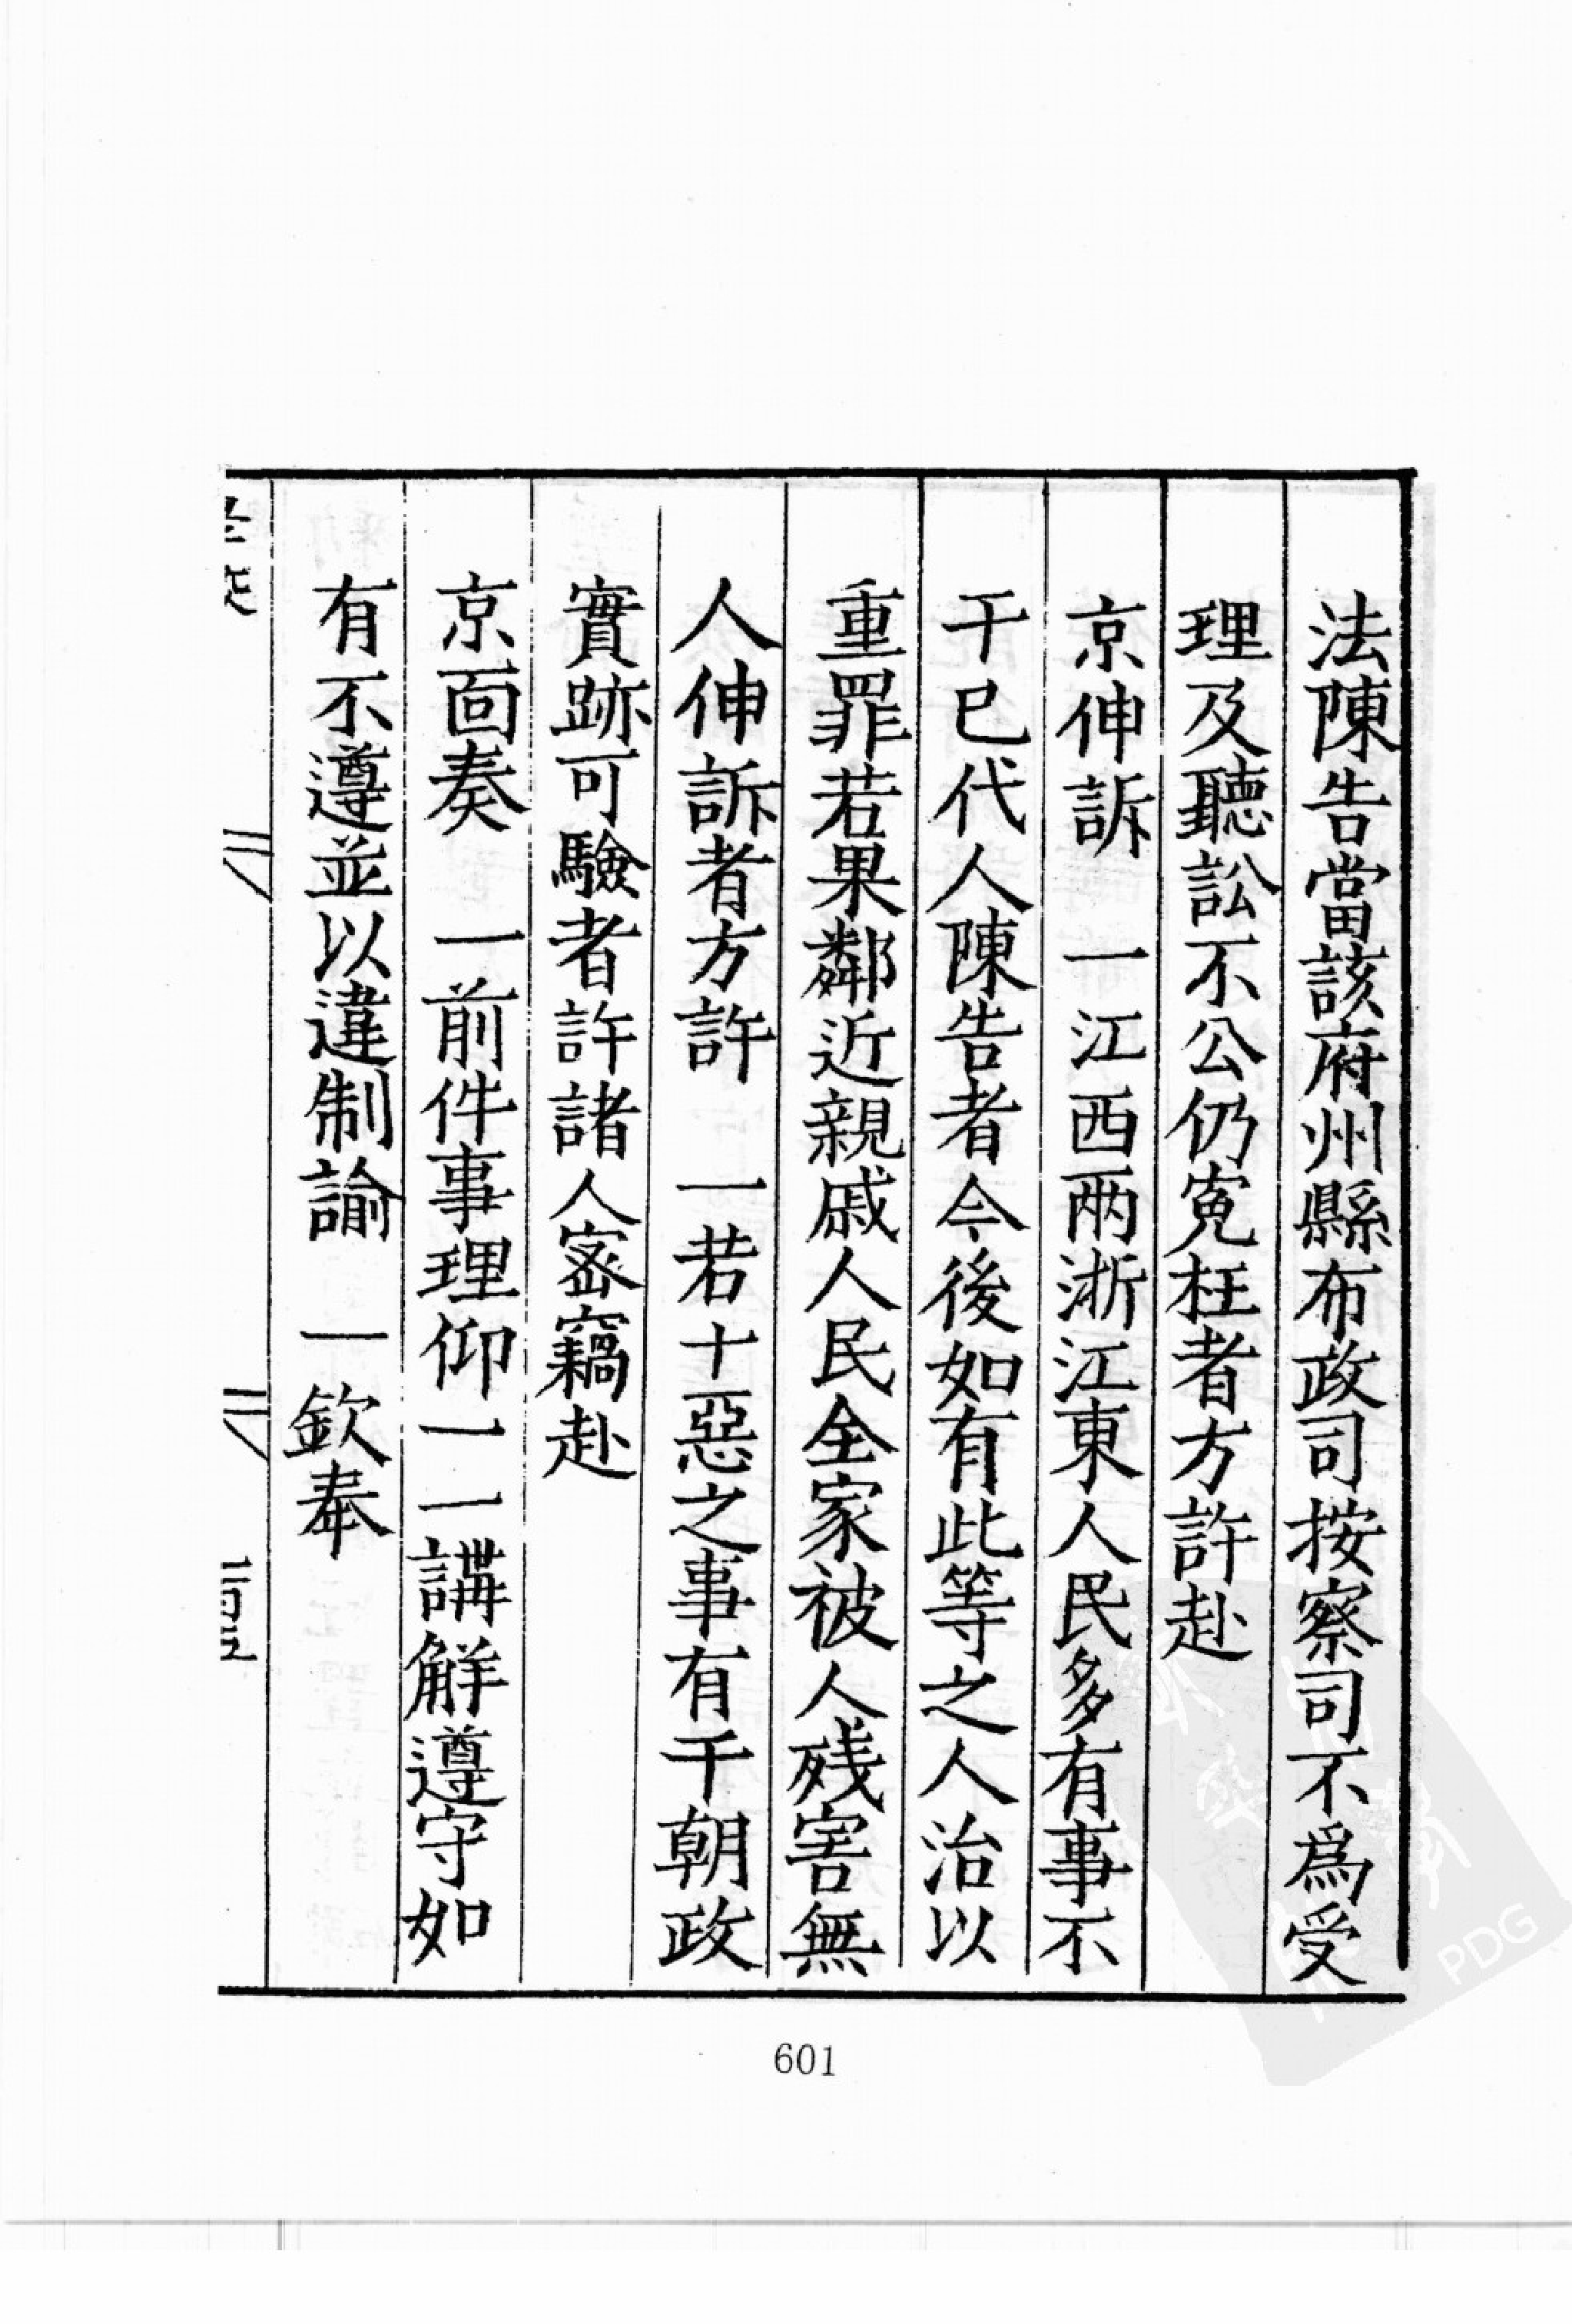 法陳告當該府州縣布政司按察司不爲受
理及聽訟不公仍寃枉者方許赴
京伸訴　一江西兩浙江東人民多有事不
干已代人陳告者今後如有此等之人治以
重罪若果鄰近親戚人民全家被人残害無
人伸訴者方許　一若十惡之事有干朝政
實跡可驗者許諸人宻竊赴
京面奏　一前件事理仰一一講解遵守如
有不遵並以違制論　一欽奉
601
PDG